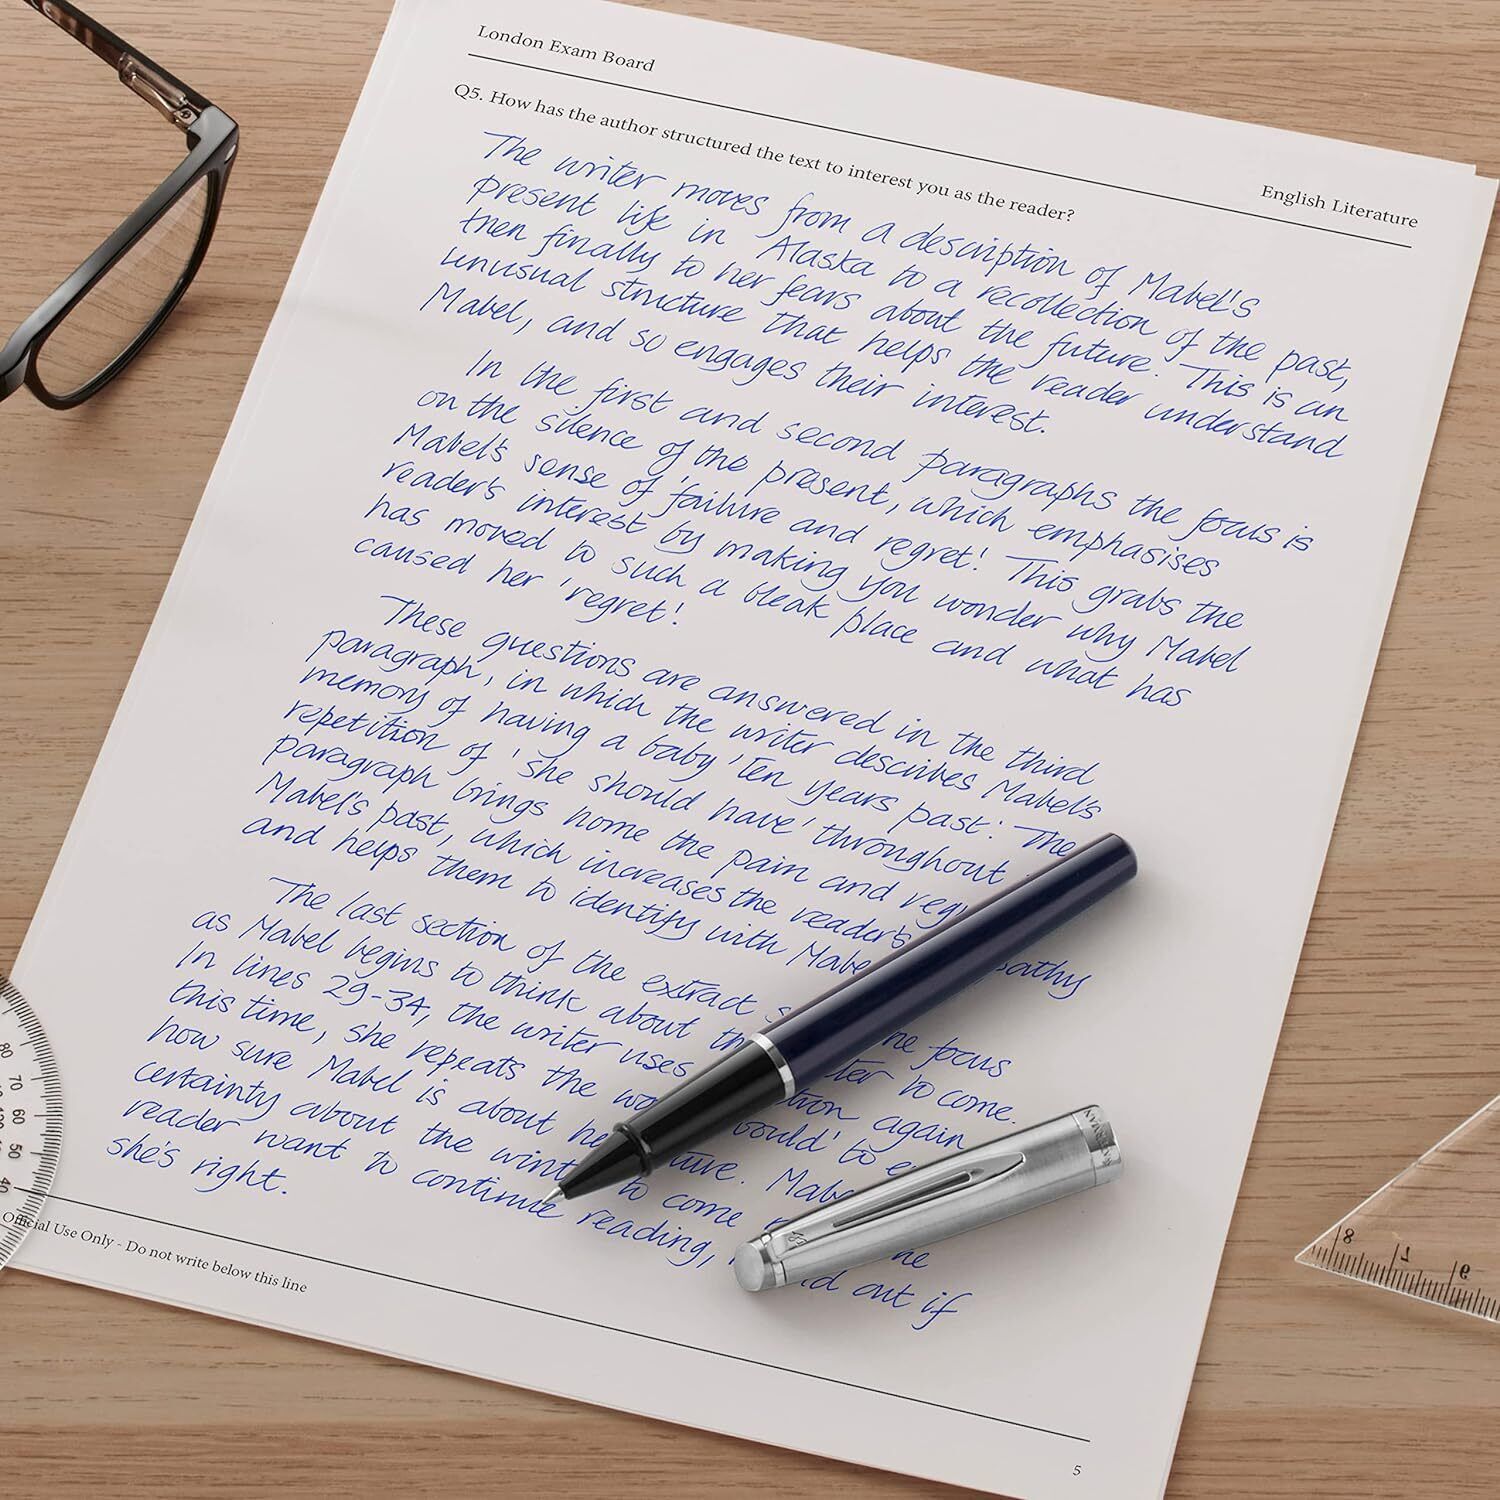 London Exam Board
English Literature
Q5. How has the author structured the text to interest you as the reader?
The writer moves from a description of Mabel's
present life in Alaska to a recollection of the past,
then finally to her fears about the future. This is an
unusual structure that helps the reader understand
Mabel, and so engages their interest.
In the first and second paragraphs the focus is
on the silence of the present, which emphasises
Mabel's sense of 'failure and regret'. This grabs the
reader's interest by making you wonder why Mabel
has moved to such a bleak place and what has
caused her 'regret'.
These questions are answered in the third
paragraph, in which the writer describes Mabel's
memory of having a baby 'ten years past'. The
repetition of 'she should have' throughout
paragraph brings home the pain and reg
Mabel's past, which increases the reader's pathy
and helps them to identify with Mabe
The last section of the extract s he focus
as Mabel begins to think about th ter to come.
In lines 29-34, the writer uses tion again
this time, she repeats the wo would' to e
how sure Mabel is about he ture. Mabe
certainty about the wint to come he
reader want to continue reading, d out if
she's right.
Official Use Only - Do not write below this line
5
80
70
60
50
40
8
7
6
WATERMAN